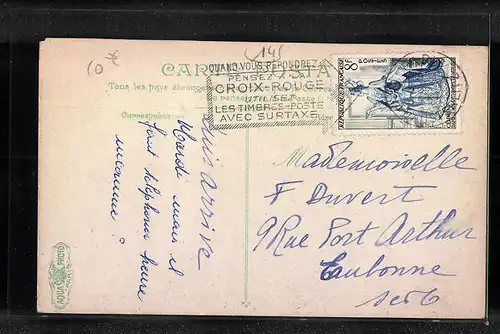 (141
CARTE POSTALE
Tous les pays étrangers
Correspondance
QUAND VOUS RÉPONDREZ
PENSEZ A LA
CROIX-ROUGE
UTILISEZ
LES TIMBRES-POSTE
AVEC SURTAXE
8F
POSTES
RÉPUBLIQUE FRANÇAISE
suis arrivée
Mardi mais il
faut téléphoner heure
inconnue ?
Mademoiselle
F Duvert
9 Rue Port Arthur
Eaubonne
S et O